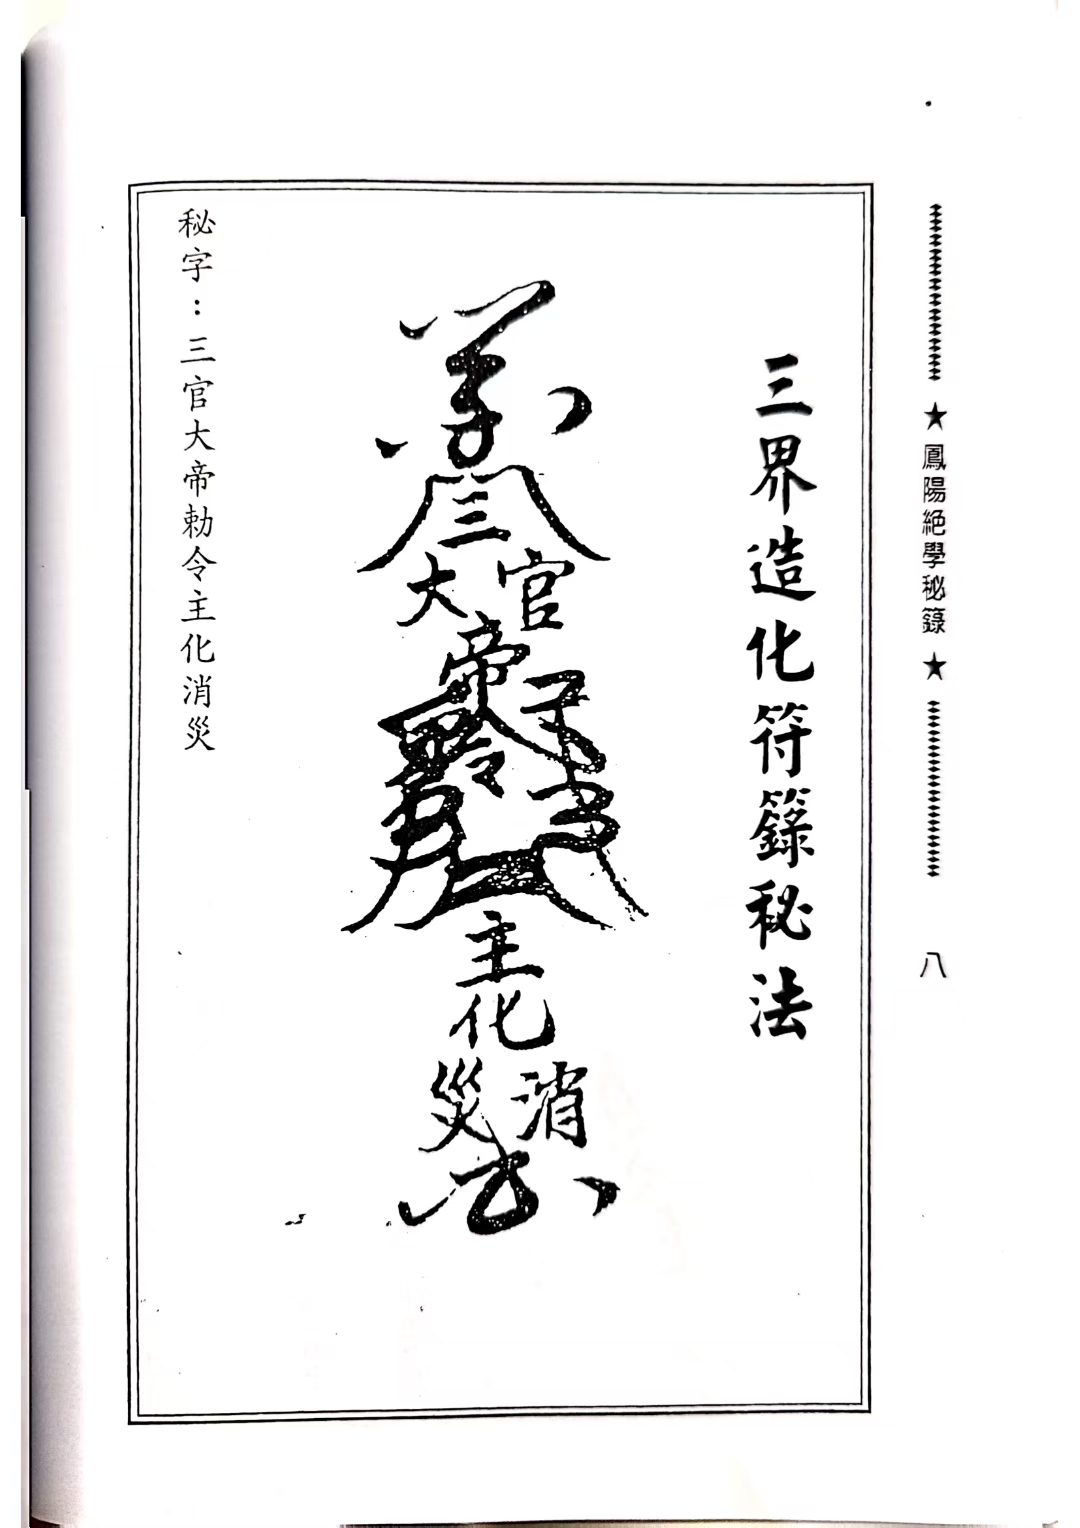 ★鳳陽絕學秘錄★
八
三界造化符籙秘法
三
官
大
帝
主
化
消
災
秘字：三官大帝勅令主化消災